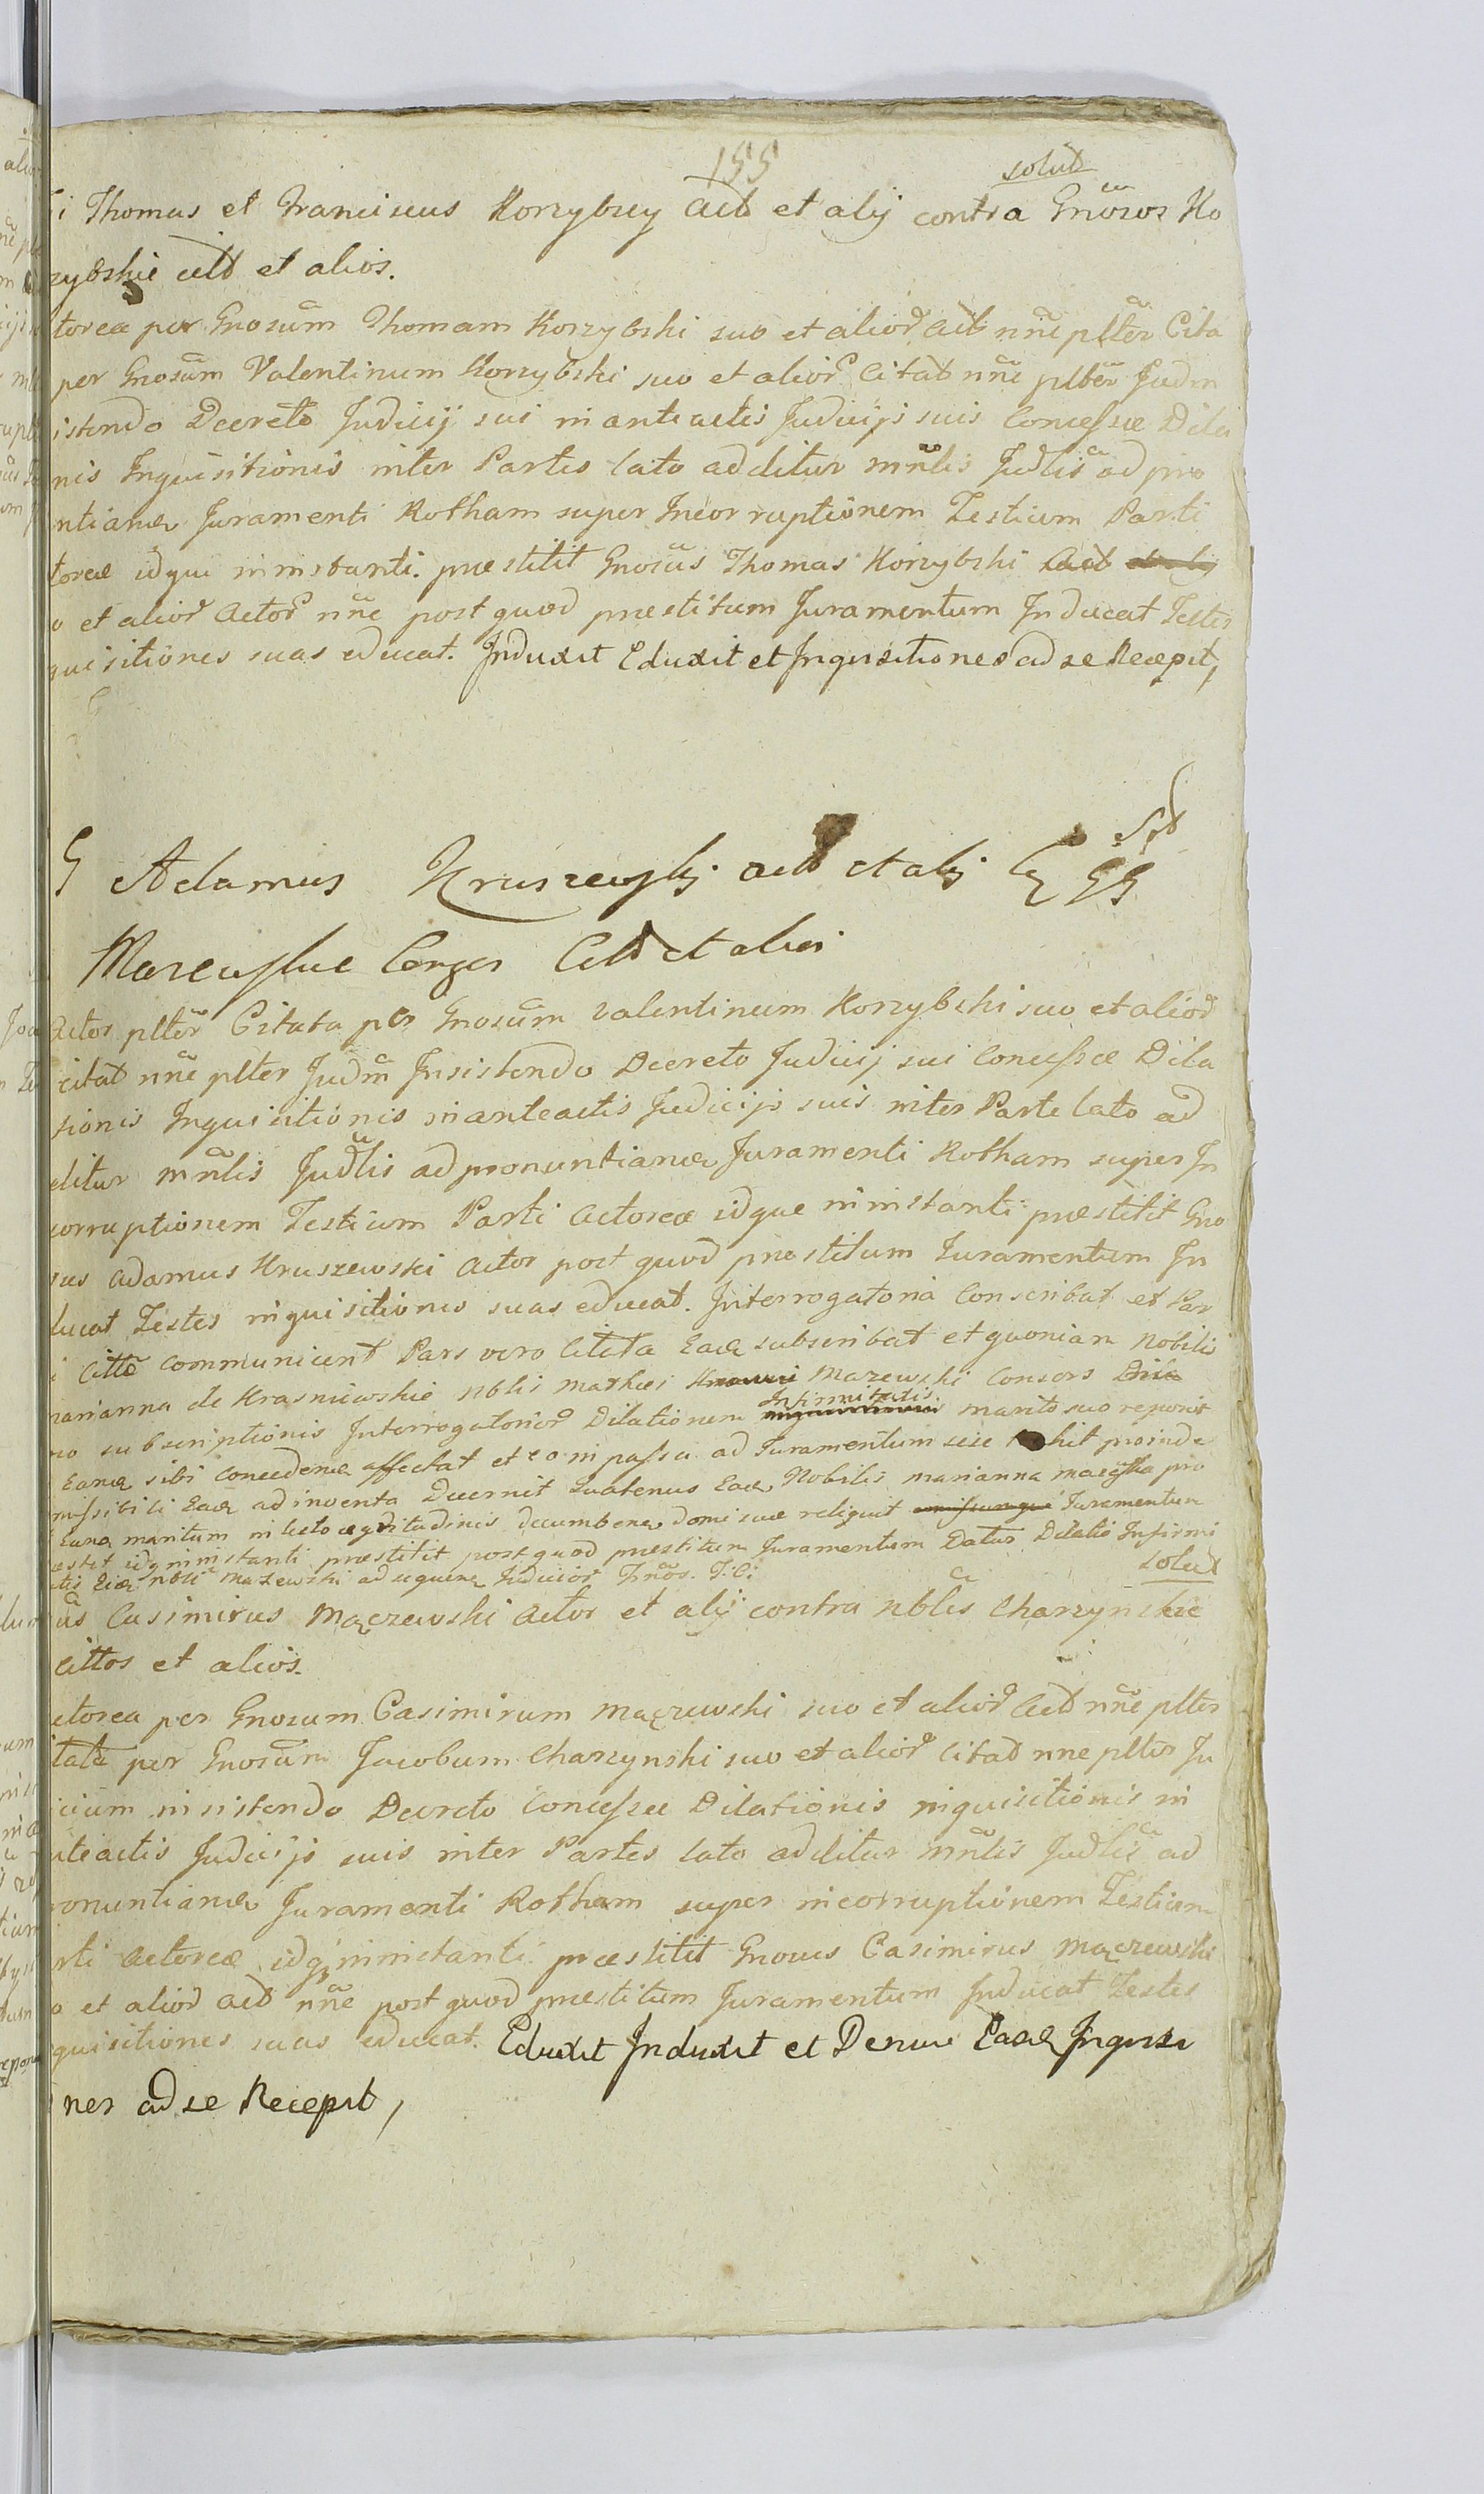 155
solut
Thomas et Franciscus Korzybscy act et alij contra Gnosos Ko
zybskie citt et alios.
torea per Gnosum Thomam Korzybski suo et alior act nne plter Cita
per Gnosum Valentinum Korzybski suo et alior Citat nne plter Judm
istendo Decreto Judicij sui in anteactis Judicijs suis Concessæ Dila
nis Inquisitionis inter Partes lato additur mnlis Judlis ad pro
ntianm Juramenti Rotham super Incorruptionem Testium Parti
toreæ idque ininstanti præstitit Gnosus Thomas Korzybski Act
o et alior Actor nne post quod præstitum Juramentum Inducat Testes
quisitiones suas educat. Induxit Eduxit et Inquisitiones ad se Recepit,
Sot
G Adamus Kruszewski act et alij Cẽ GG
Mazewskie Conges Citt et alios
Actor plter Citata per Gnosum Valentinum Korzybski suo et alior
citat nne plter Judm Insistendo Decreto Judicij sui Concessæ Dila
tionis Inquisitionis in anteactis Judicijs suis inter Parte lato ad
ditur mnlis Judlis ad pronuntianm Juramenti Rotham super In
corruptionem Testium Parti Actoreæ idque ininstanti præstitit Gno
sus Adamus Kruszewski Actor post quod præstitum Juramentum In
ducat Testes inquisitiones suas educat. Interrogatoria Conscribat et Par
i Cittæ communicent Pars vero Citata Eadm subscribat et quoniam Nobilis
Marianna de Krasniewskie Nblis Mathei Mazewski Consors
no subscriptionis Interrogatorior Dilationem Infirmitatis marito suo reponit
Eanm sibi concedenm affectat et eo in passu ad Juramentum sese proinde
missibili Eadm adinventa Decernit Quatenus Eadm Nobilis Marianna Mazewska pro
Eunm maritum in lecto ægritudinis decumbenm domi suæ reliquit Juramentum
æstet idq ininstanti præstitit post quod præstitum Juramentum Datur Dilatio Infirmi
tis Eidm Nbli Mazewski ad sequenm Judicior Tnos. T: C:
solut
us Casimirus Mączewski Actor et alij contra Nbles Charzynskie
Cittos et alios.
ctorea per Gnosum Casimirum Mączewski suo et alior Act nne plter
itata per Gnosum Jacobum Charzynski suo et alior citat nne plter Ju
icium insistendo Decreto Concessæ Dilationis inquisitionis in
nteactis Judicijs suis inter Partes lato additur mnlis Judlis ad
ronuntianm Juramenti Rotham super incorruptionem Testium
rti Actoreæ idq ininstanti præstitit Gnosus Casimirus Mączewski
o et alior act nne post quod præstitum Juramentum Inducat Testes
quisitiones suas educat. Eduxit Induxit et Denuo Easdm Inquisi
nes ad se Recepit,